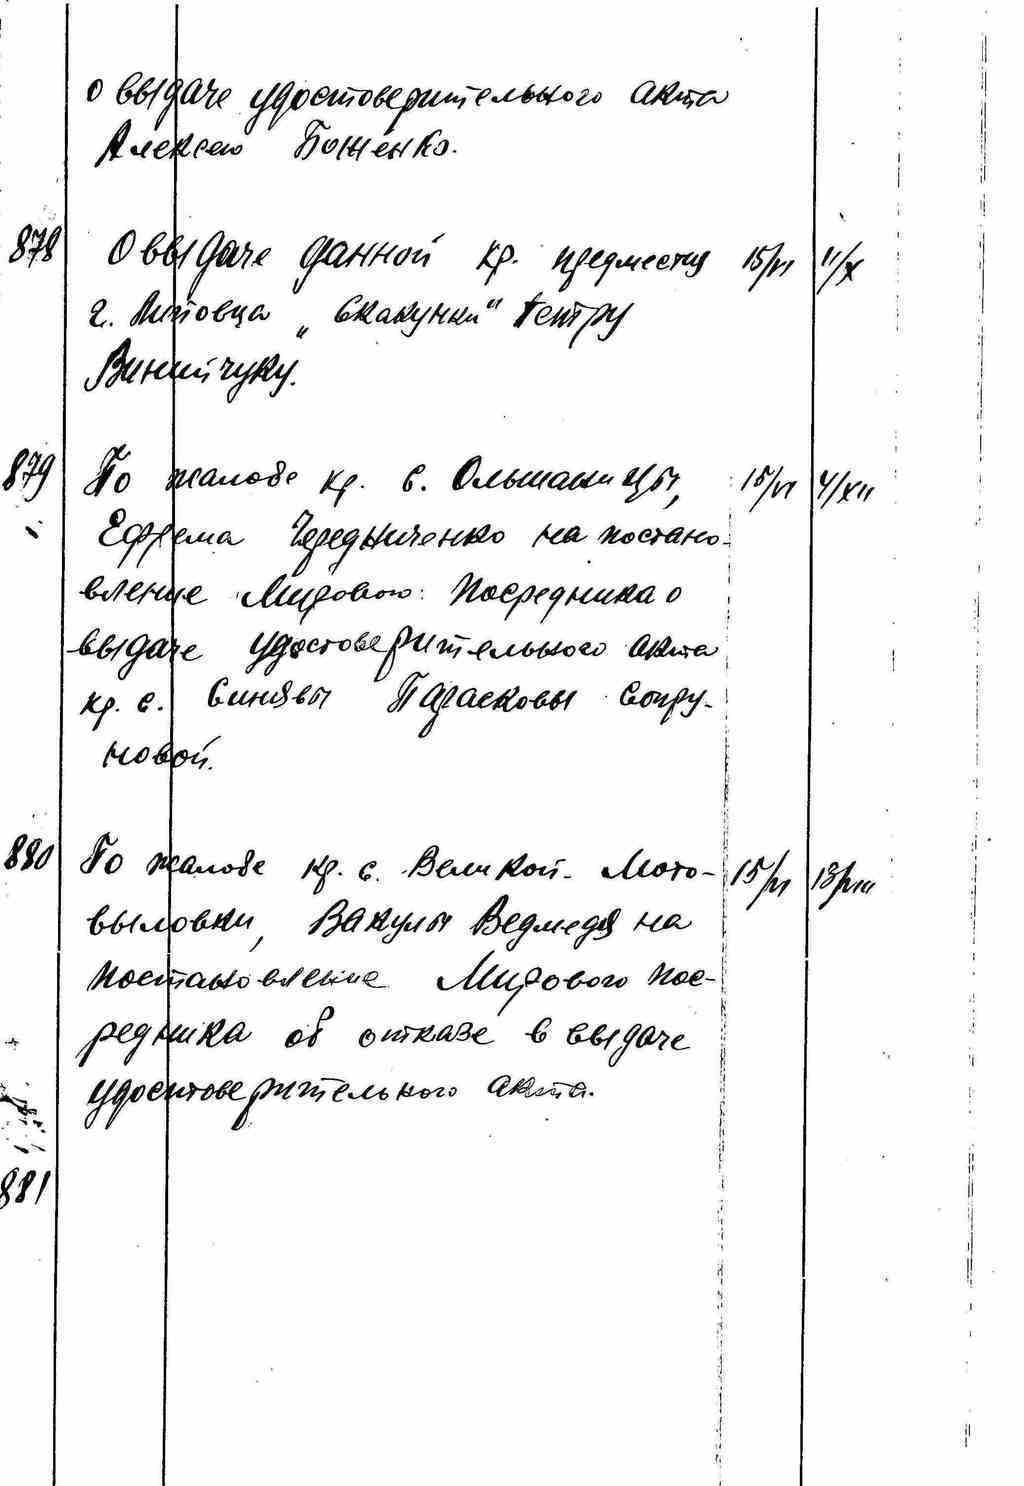 о выдаче удостоверительного акта
Алексею Боженко.
878 О выдаче данной кр. предместия 15/VI 11/X
г. Липовца „Скакунки" Петру
Винничуку.
879 По жалобе кр. с. Ольшаницы, 15/VI 4/XII
Ефрема Чередниченко на постано-
вление Мирового Посредника о
выдаче удостоверительного акта
кр. с. Синявы Парасковы Сопру-
новой.
880 По жалобе кр. с. Великой- Мото- 15/VI 13/VIII
выловки, Вакулы Ведмедя на
постановление Мирового Пос-
редника об отказе в выдаче
удостоверительного акта.
881